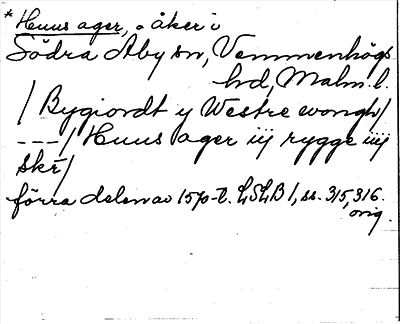 * Huus ager, åker i
Södra Åby sn, Vemmenhögs
hd, Malm. l.
/ Bygiordt y Westre wongh /
---/ Huus ager iij rygge iiij
skr /
förra delen av 1570-t. LSLB 1, ss. 315, 316.
orig.